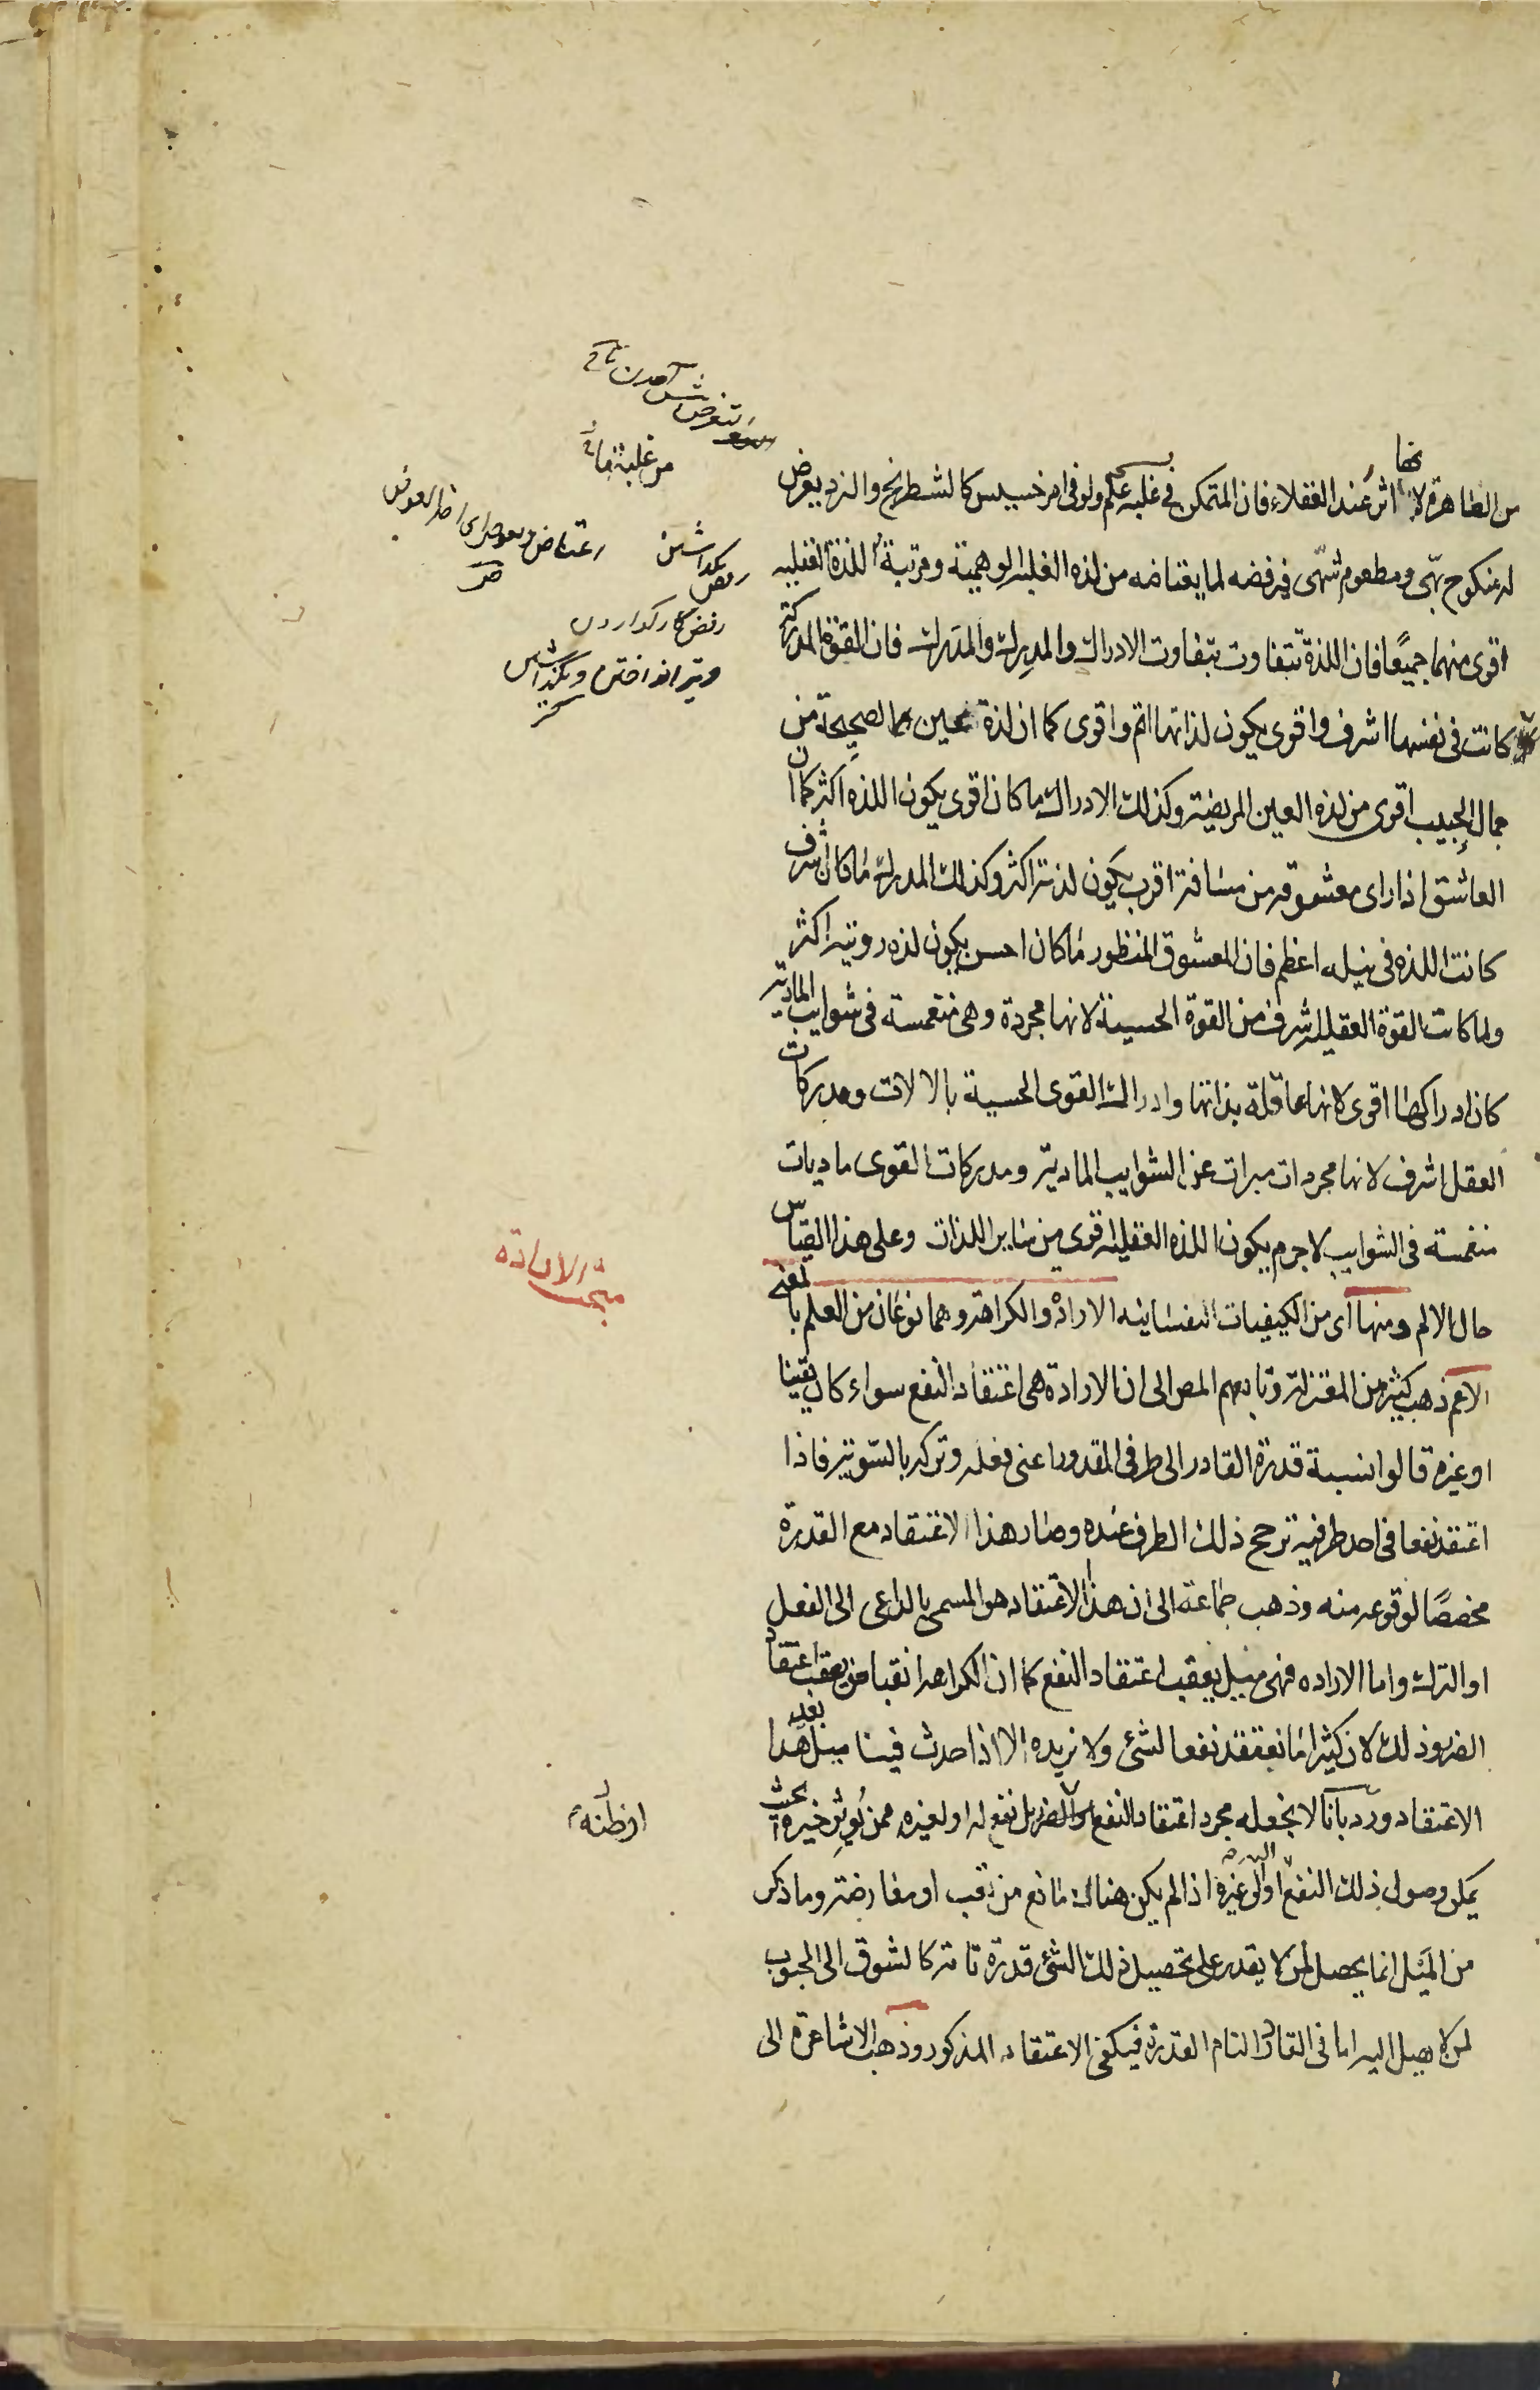 من الظاهرة لانها اثر عند العقلاء فان المتمكن في غلبه علم ولو في امر خسيس كالشطرنج والنرد يعرض
له منكوح بهي ومطعوم شهى فيرفضه لما يعتاضه من لذه الغلبة الوهمية ومرتبة اللذة العقلية
اقوى منهما جميعا فان اللذة تتفاوت بتفاوت الادراك والمدرِك والمدرَك فان القوة المدركة
كانت في نفسها اشرف واقوى يكون لذاتها اتم واقوى كما ان لذة عين الصحيحة من
جمال الحبيب اقوى من لذه العين المريضة وكذلك الادراك ما كان اقوى يكون اللذه اكثر كما ان
العاشق اذا راى معشوقه من مسافة اقرب يكون لذته اكثر وكذلك المدرك ما كان اشرف
كانت اللذه في نيله اعظم فان المعشوق المنظور ما كان احسن يكون لذه رويته اكثر
ولما كانت القوة العقليه اشرف من القوة الحسية لانها مجردة وهي منغمسة في شوايب المادية
كان ادراكها اقوى لانها عاقلة بذاتها وادراك القوى الحسية بالالات ومدركات
العقل اشرف لانها مجردات مبرات عن الشوايب المادية ومدركات القوى ماديات
منغمسة في الشوايب لا جرم يكون اللذه العقلية اقوى من ساير اللذات وعلى هذا القياس
حال الالم ومنها اى من الكيفيات النفسانيه الارادة والكراهة وهما نوعان من العلم بالمعنى
الاعم ذهب كثير من المعتزلة وتابعهم المص الى ان الارادة هي اعتقاد النفع سواء كان يقينا
او غيره قالوا نسبة قدرة القادر الى طرفي المقدور اعنى فعله وتركه بالسوية فاذا
اعتقد نفعا في احد طرفيه ترجح ذلك الطرف عنده وصار هذا الاعتقاد مع القدرة
مخصصًا لوقوعه منه وذهب جماعة الى ان هذا الاعتقاد هو المسمى بالداعى الى الفعل
او الترك واما الاراده فهى ميل يعقب اعتقاد النفع كما ان الكراهه انقباض يعقب اعتقاد
الضر وذلك لان كثيرا ما نعتقد نفعا لشئ ولا نريده الا اذا حدث فينا ميل بعد هذا
الاعتقاد ورد بانا لا نجعله مجرد اعتقاد النفع بل نفع له او لغيره ممن يُوثر خيره بحيث
يمكن وصول ذلك النفع اليه او الى غيره اذا لم يكن هناك مانع من تعب او معارضة وما ذكر
من الميل انما يحصل لمن لا يقدر على تحصيل ذلك الشئ قدرة تامة كالشوق الى المحبوب
لمن لا يصل اليه اما في القادر التام القدرة فيكفى الاعتقاد المذكور وذهب الاشاعرة الى
مبحث الارادة
او ظنه